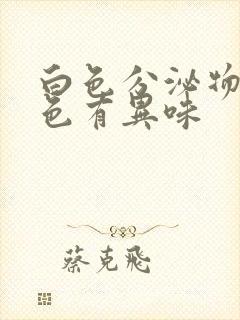 白色分泌物
色有異味
蔡克飛